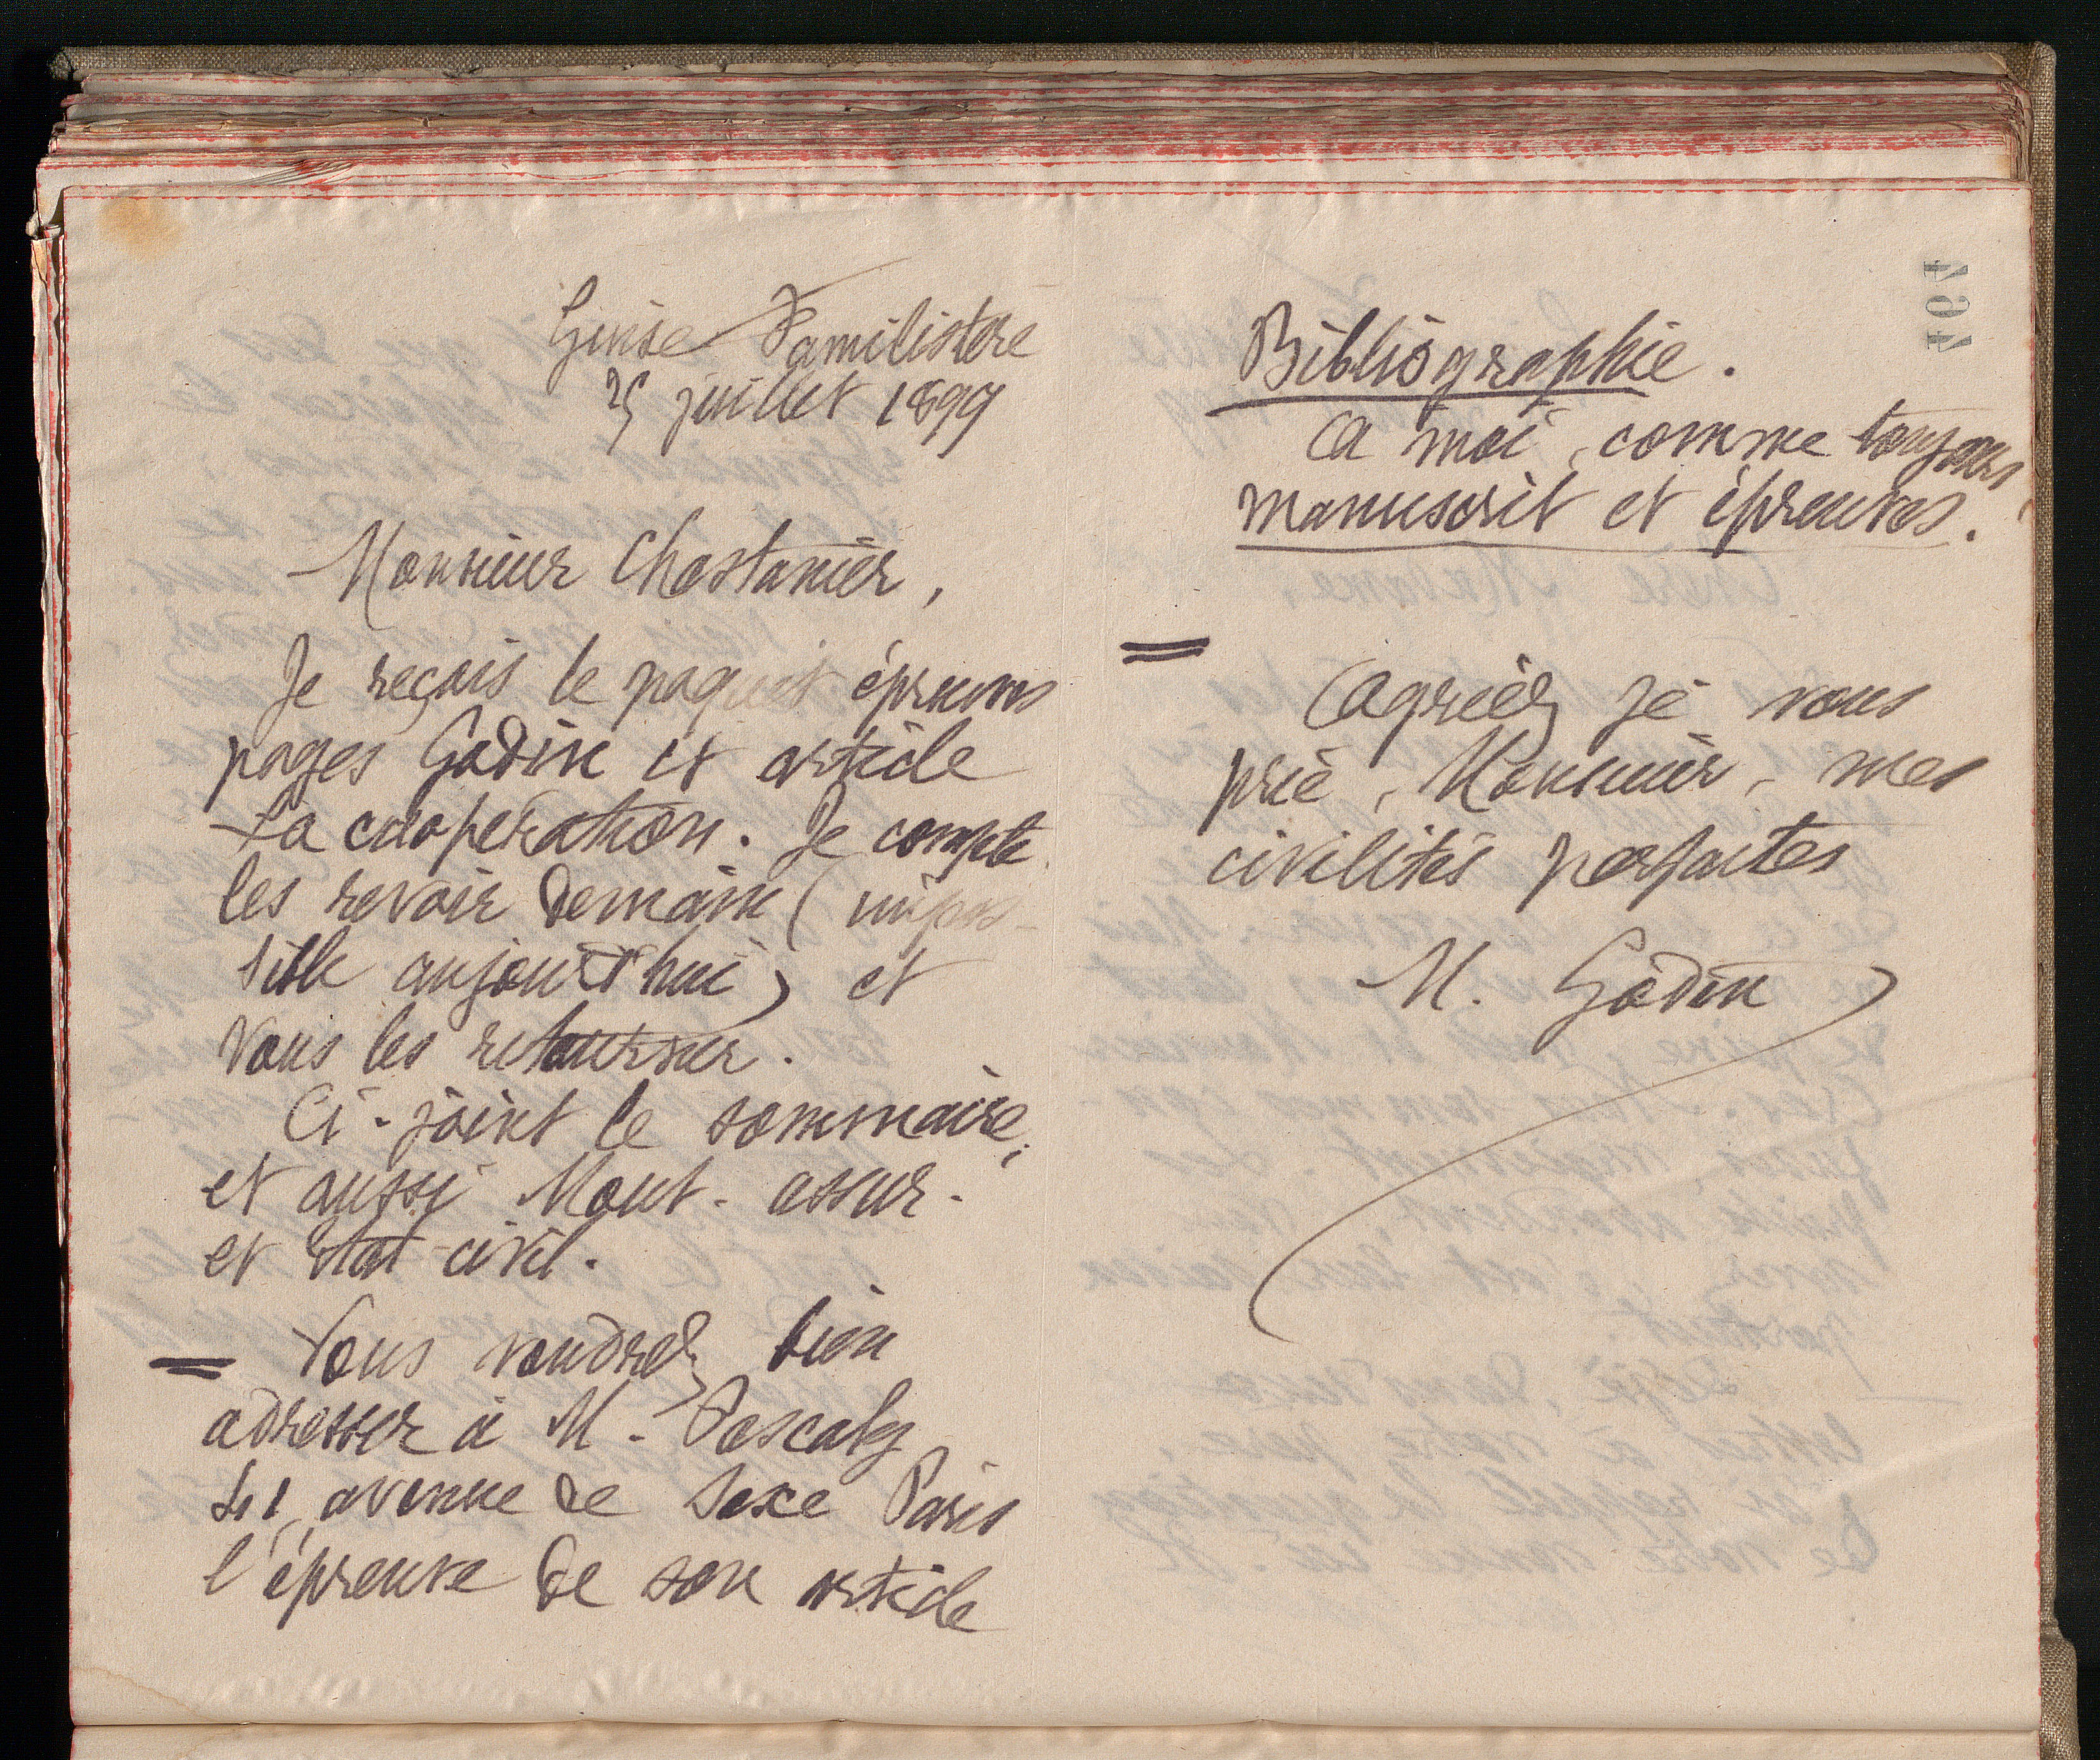 Guise Familistère
25 juillet 1899
Monsieur Chastanier,
Je reçois le paquet épreuves
pages Godin et article
La coopération. Je compte
les revoir demain (impos-
sible aujourd'hui) et
vous les retourner.
Ci-joint le sommaire,
et aussi Mout. assur.
et état-civil.
= Vous voudrez bien
adresser à M. Pascaly
avenue de Saxe Paris
l'épreuve de son article
Bibliographie.
A moi, comme toujours,
manuscrit et épreuves.
=
Agréez je vous
prie, Monsieur, mes
civilités parfaites
M. Godin